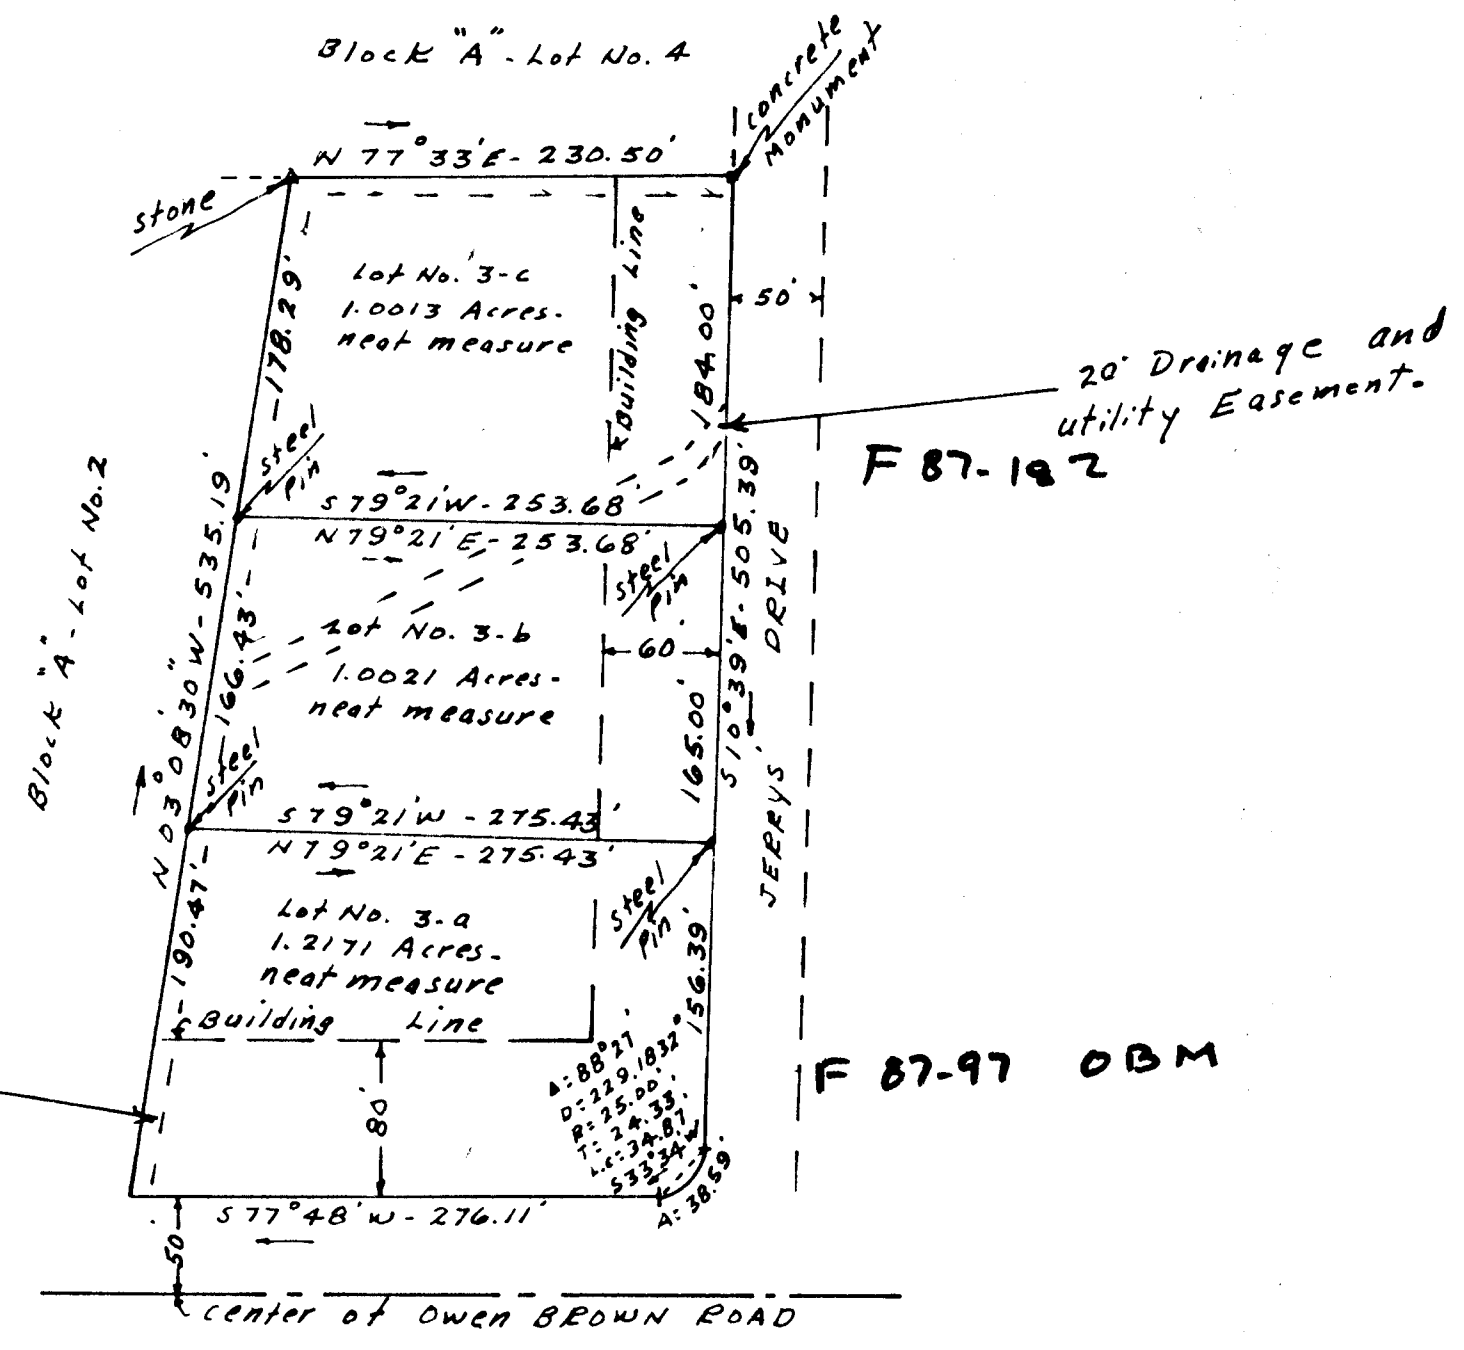 Block "A" - Lot No. 4
concrete
Monument
N 77°33'E - 230.50'
stone
Building Line
Lot No. 3-c
1.0013 Acres-
neat measure
178.29'
184.00'
50'
20' Drainage and
utility Easement.
F 87-182
steel
Pin
S 79°21'W - 253.68
N 79°21'E - 253.68'
steel
Pin
Block "A" - Lot No. 2
N 03°08'30"W - 535.19'
166.43'
Lot No. 3-b
1.0021 Acres-
neat measure
60'
165.00'
S 10°39'E - 505.39'
JERRYS' DRIVE
steel
Pin
S 79°21'W - 275.43'
N 79°21'E - 275.43'
steel
Pin
190.47'
Lot No. 3-a
1.2171 Acres-
neat measure
Building Line
156.39'
80'
Δ=88°27'
D=229.1832°
R=25.00'
T=24.33'
L.C=34.87'
S33°34'W
A=38.59'
F 87-97 OBM
S 77°48'W - 276.11'
50'
center of Owen BROWN ROAD